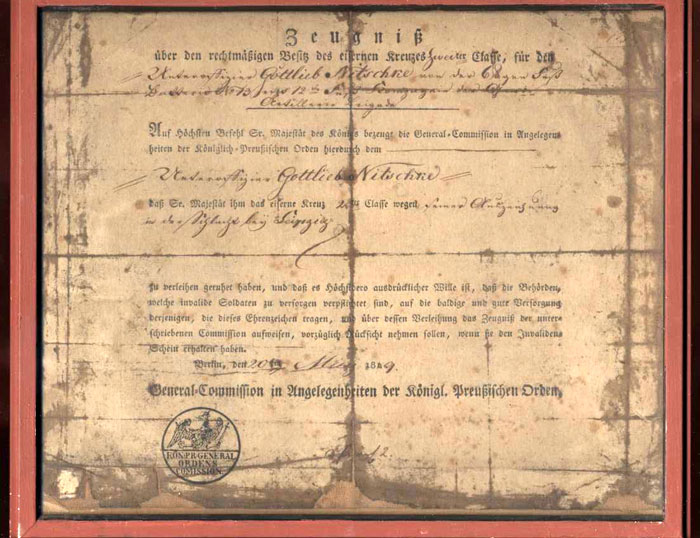 Zeugniß
über den rechtmäßigen Besitz des eisernen Kreuzes zweiter Classe, für den
Unteroffizier Gottlieb Nitschke, von der 6pfgen Fuß
Batterie No 13 jetzt 12te Fuß Compagnie der
Artillerie Brigade
Auf Höchsten Befehl Sr. Majestät des Königs bezeugt die General-Commission in Angelegen
heiten der Königlich-Preußischen Orden hierdurch dem
Unteroffizier Gottlieb Nitschke
daß Sr. Majestät ihm das eiserne Kreuz 2ter Classe wegen seiner Auszeichnung
in der Schlacht bey Leipzig
zu verleihen geruhet haben, und daß es Höchstdero ausdrücklicher Wille ist, daß die Behörden,
welche invalide Soldaten zu versorgen verpflichtet sind, auf die baldige und gute Versorgung
derjenigen, die dieses Ehrenzeichen tragen, und über dessen Verleihung das Zeugniß der unter-
schriebenen Commission aufweisen, vorzüglich Rücksicht nehmen sollen, wenn sie den Invaliden
Schein erhalten haben.
Berlin, den 20ten 18
General-Commission in Angelegenheiten der Königl. Preußischen Orden.
KÖN:PR:GENERAL
ORDENS
COMMISSION